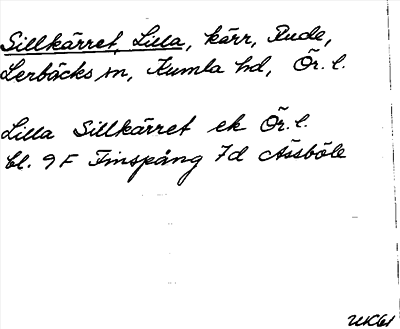 Sillkärret, Lilla, kärr, Rude,
Lerbäcks sn, Kumla hd, Ör. l.
Lilla Sillkärret ek Ör. l.
bl. 9F Finspång 7d Assböle
UK61